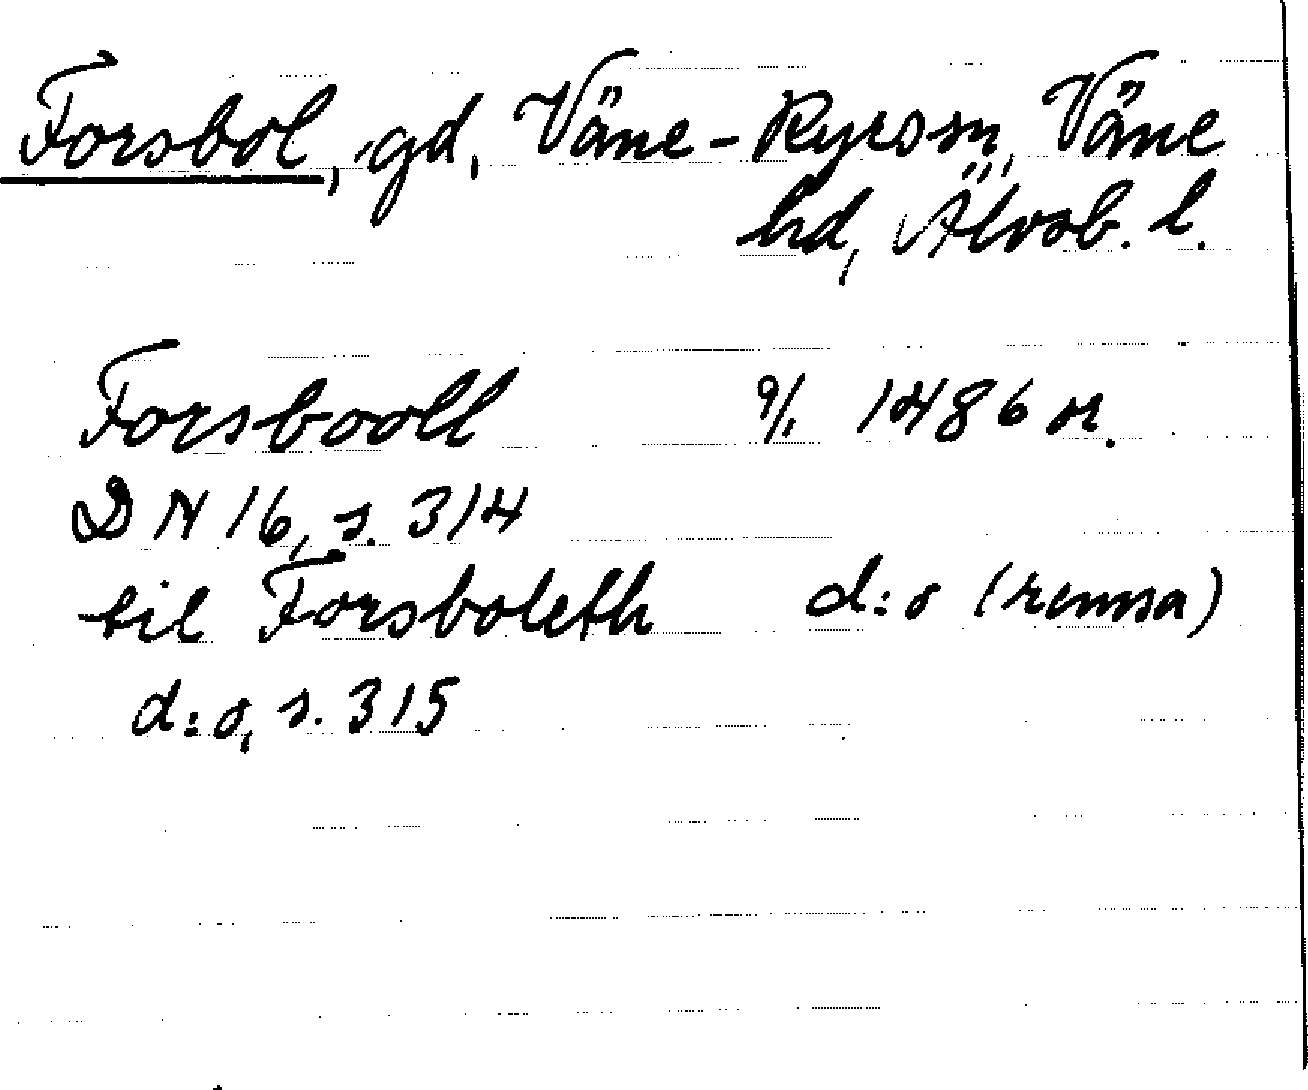 Forsbol, gd, Väne-Ryrs sn, Väne
hd, Älvsb. l.
Forsbooll 9/1 1486 or.
DN 16, s. 314
til Forsboleth d:o (remsa)
d:o, s. 315